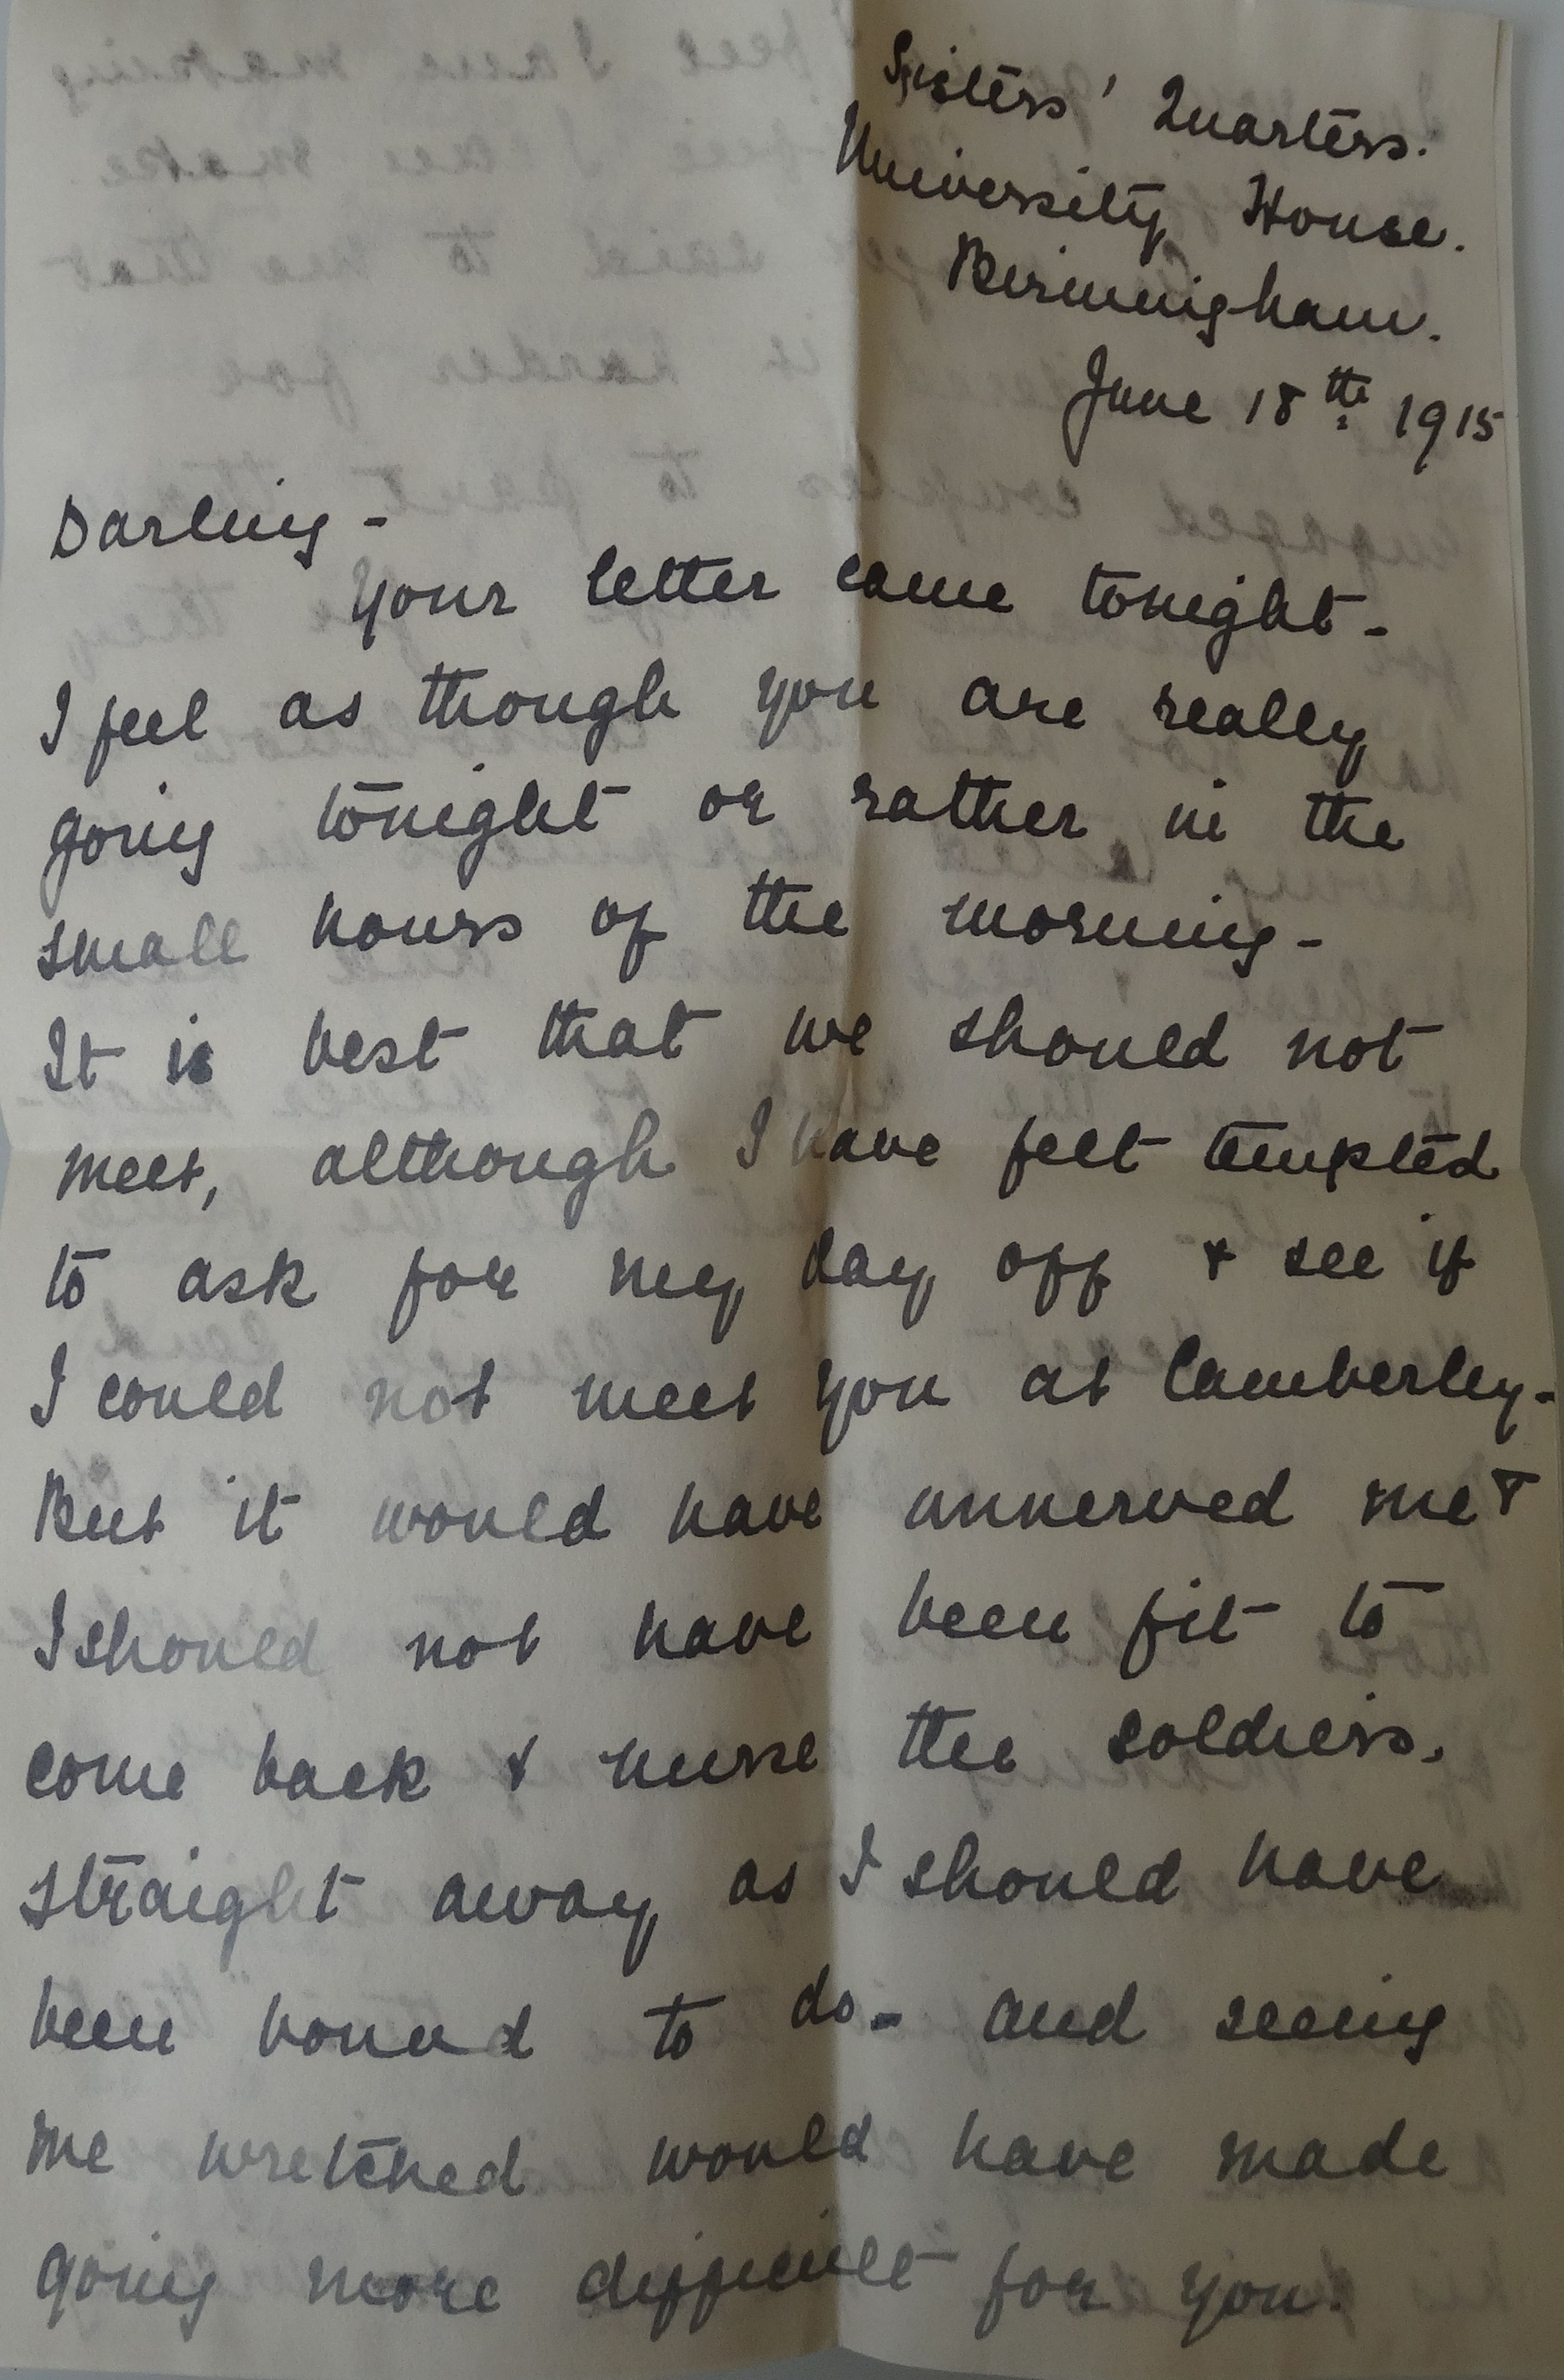 Sisters' Quarters.
University House.
Birmingham.
June 18th 1915
Darling -
Your letter came tonight -
I feel as though you are really
going tonight or rather in the
small hours of the morning -
It is best that we should not
meet, although I have felt tempted
to ask for my day off & see if
I could not meet you at Camberley -
But it would have unnerved me &
I should not have been fit to
come back & nurse the soldiers.
straight away as I should have
been bound to do - and seeing
me wretched would have made
going more difficult for you.